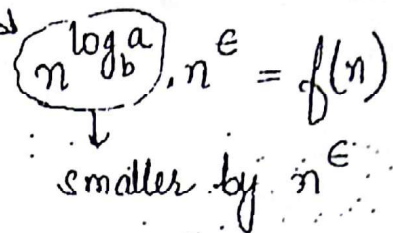 n^log_b a . n^ϵ = f(n)
smaller by n^ϵ